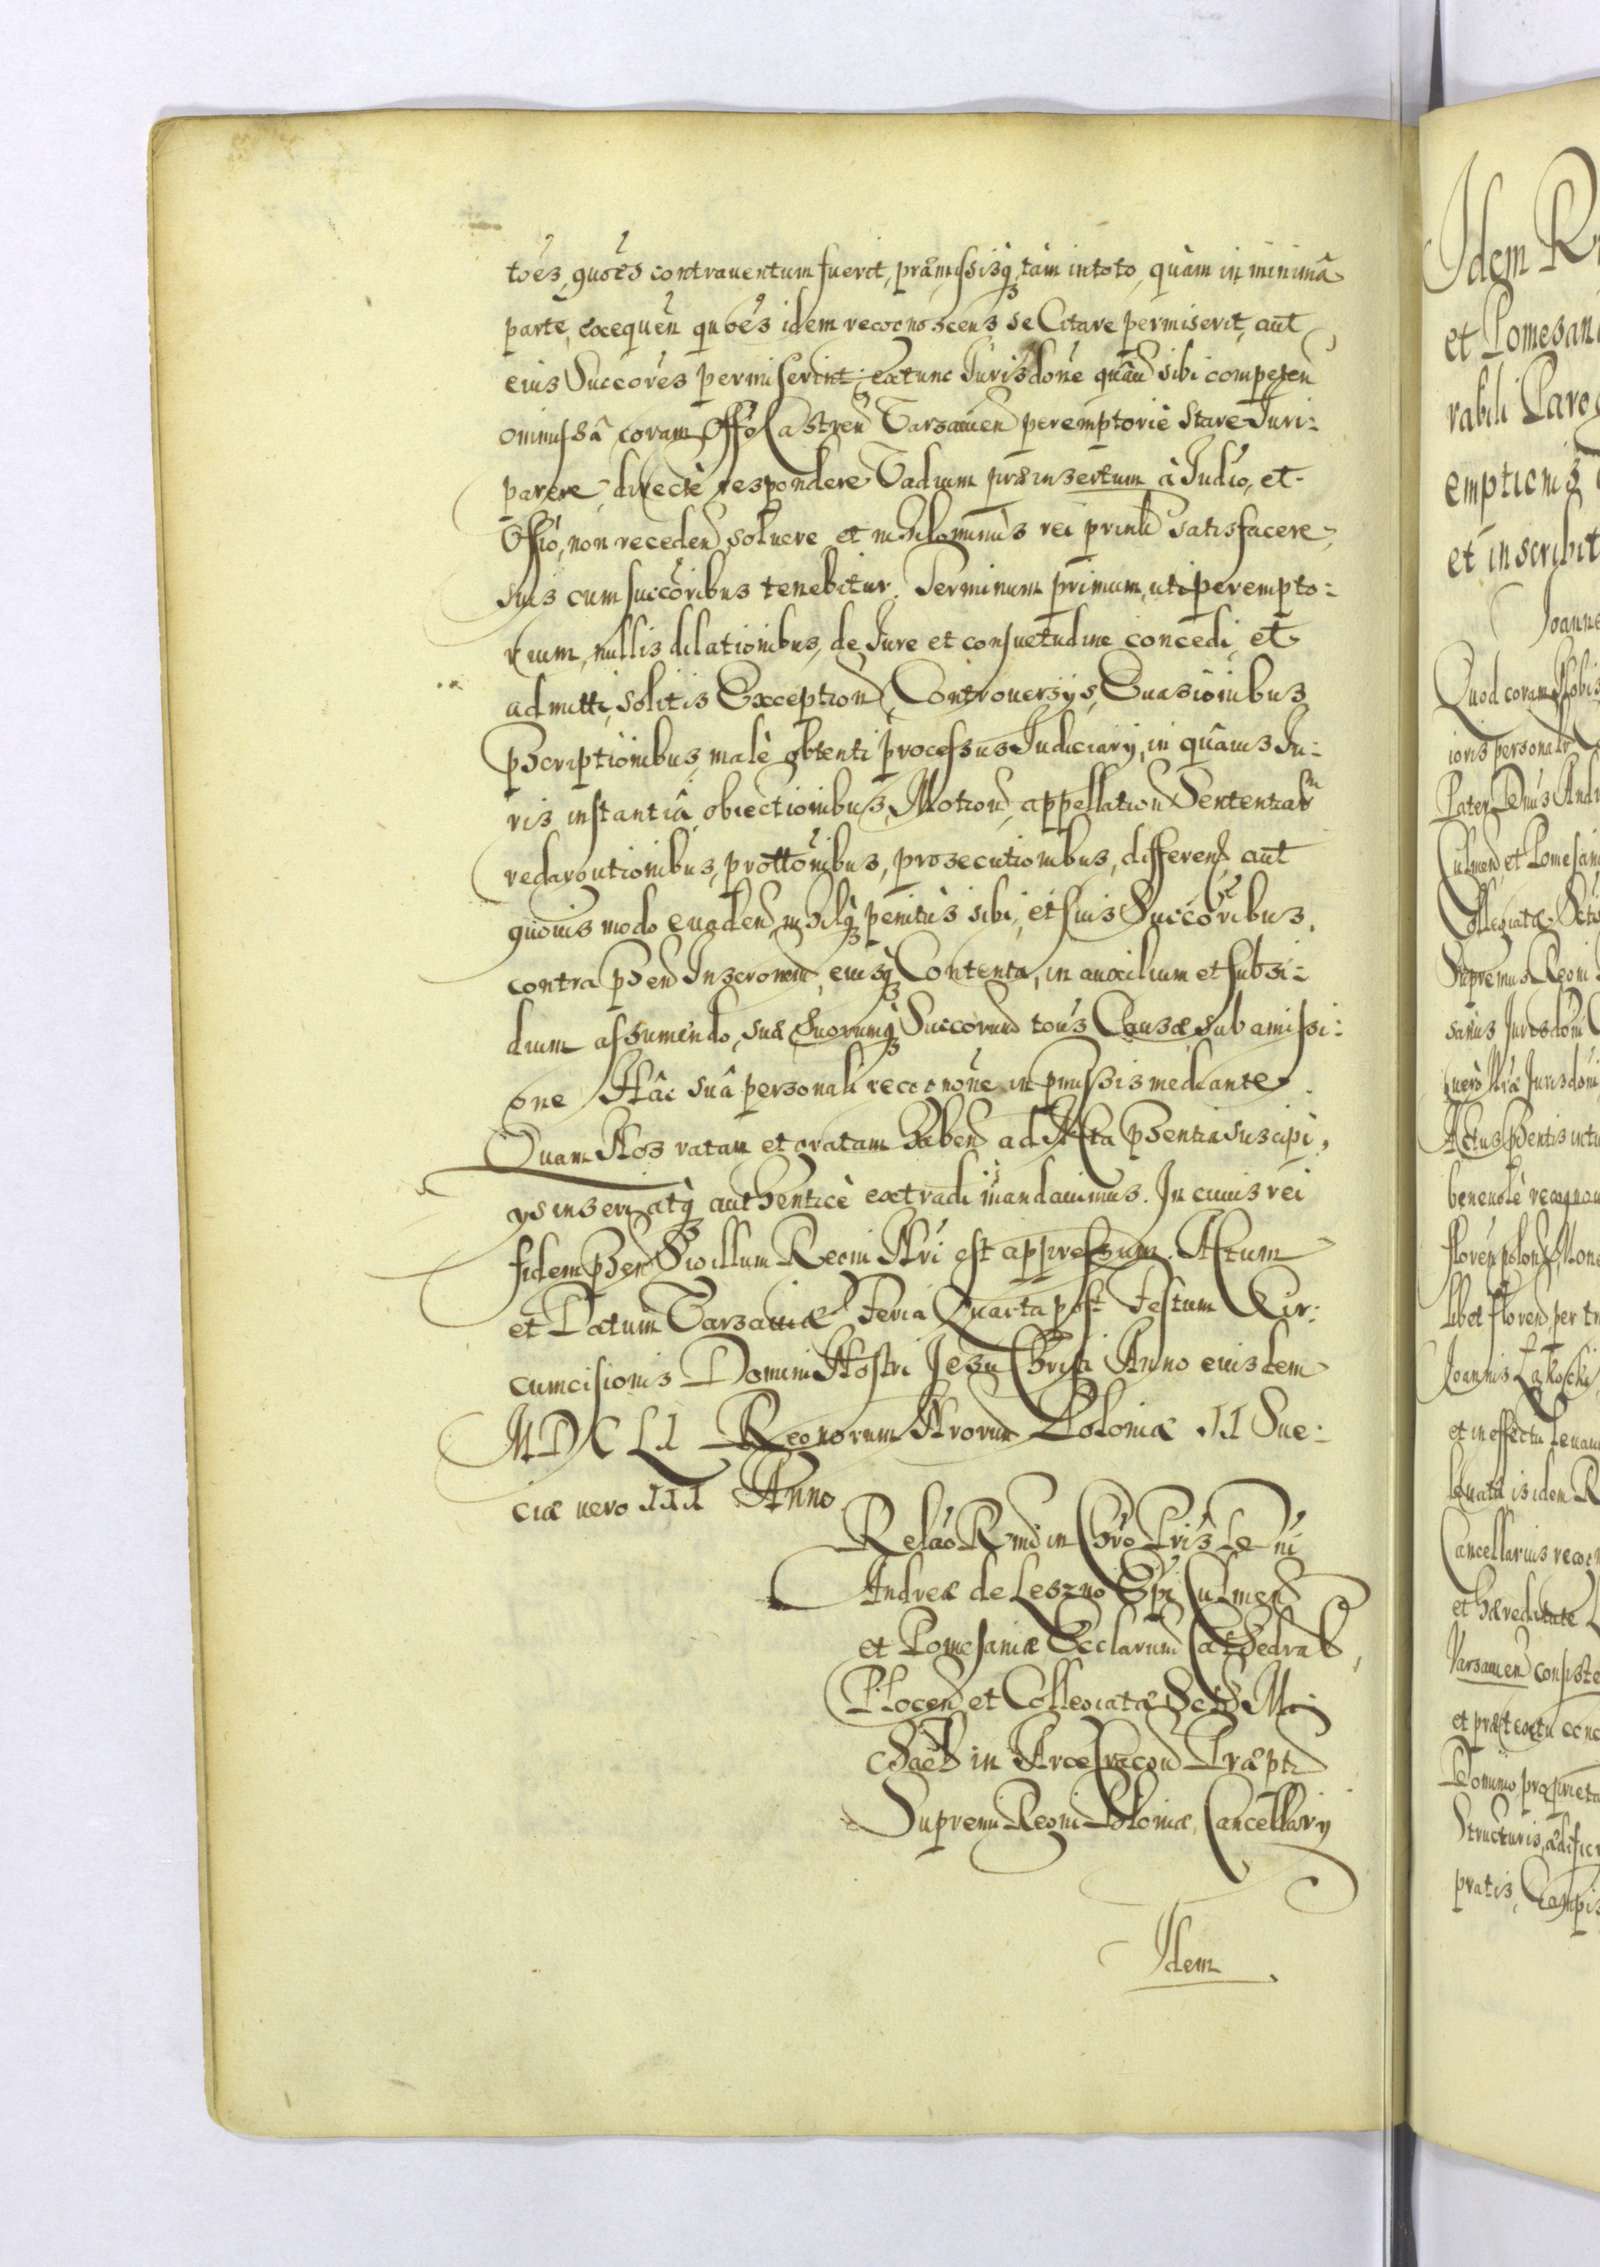 toēs, quoēs contrauentum fuerit, præmissisq₃ tàm in toto, quàm in minimâ
parte, exequen quoēs idem recognoscens se Citare permiserit, aut
eius Succores permiserint; extunc Jurisdone quâuis sibi competen
ommissâ coram Offo Castren Varsauien peremptoriè stare Juri:
parere, directè respondere Vadium præinsertum à Judio, et
Offio, non receden soluere et nihilominùs rei prinli satisfacere,
suis cum succoribus tenebitur. Terminum primum, uti perempto:
rium, nullis dilationibus, de Jure et consuetudine concedi, et
admitti, solitis Exception, Controuersys, Euasionibus
pscriptionibus, malè obtenti processus Judiciary, in quâuis Ju:
ris instantiâ, obiectionibus, Motion, appellation Sententiarum
redargutionibus, prottonibus, prosecutionibus, differen aut
quouis modo euaden, nihilq₃ penitùs sibi, et suis Succoribus,
contra psen Inscronem, eiusq₃ Contenta, in auxilium et subsi:
dium assumendo, suæ suorumq₃ Succorum toūs Causæ sub amissi:
one Hâc suâ personali recognone in pmissis mediante.
Quam Nos ratam et gratam haben ad Acta psentia suscipi,
ys inseri, atq₃ authenticè extradi mandauimus. In cuius rei
fidem psen Sigillum Regni Nri est appressum. Actum
et Datum Varsauiæ Feria Quarta post Festum Cir:
cumcisionis Domini Nostri Jesu Christi Anno eiusdem
MDCLI Regnorum Nrorum Poloniæ II Sue:
ciæ uero III Anno
Relao Rmi in Chro Pris Dni
Andreæ de Leszno Epi Culmen
et Pomesaniæ Ecclarum Cathedral,
Plocen et Collegiatæ Scti Mi:
chaelis in Arce Cracou Præpti
Supremi Regni Poloniæ, Cancellary
Idem
Idem R
et Pomesan
rabili Par
emptionis
et inscribit
Joanne
Quod coram Nobis
ioris personalr
Pater Dnus Andr
Culmen, et Pomesani
Collegiatæ Scti
Supremus Regni
sanus Jurisdoni
uerò Nræ Jurisdoni
Actus psentis
beneuolè recogno
floren polon, Mone
libet floren, per tr
Joannis Łakoski
et in effectu leuau
leuata is idem R
Cancellarius recog
et hæreditate
Varsauien consiste
et prætextu
Dominio, proprieta
Structuris, ædific
pratis, Campis